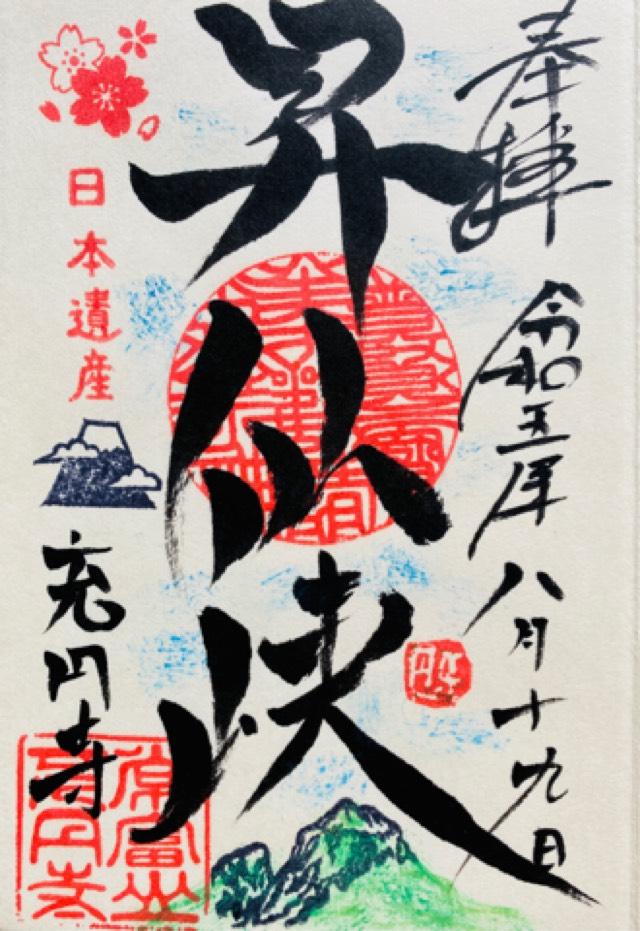 奉拝
令和五年八月十九日
昇仙峡
日本遺産
充円寺